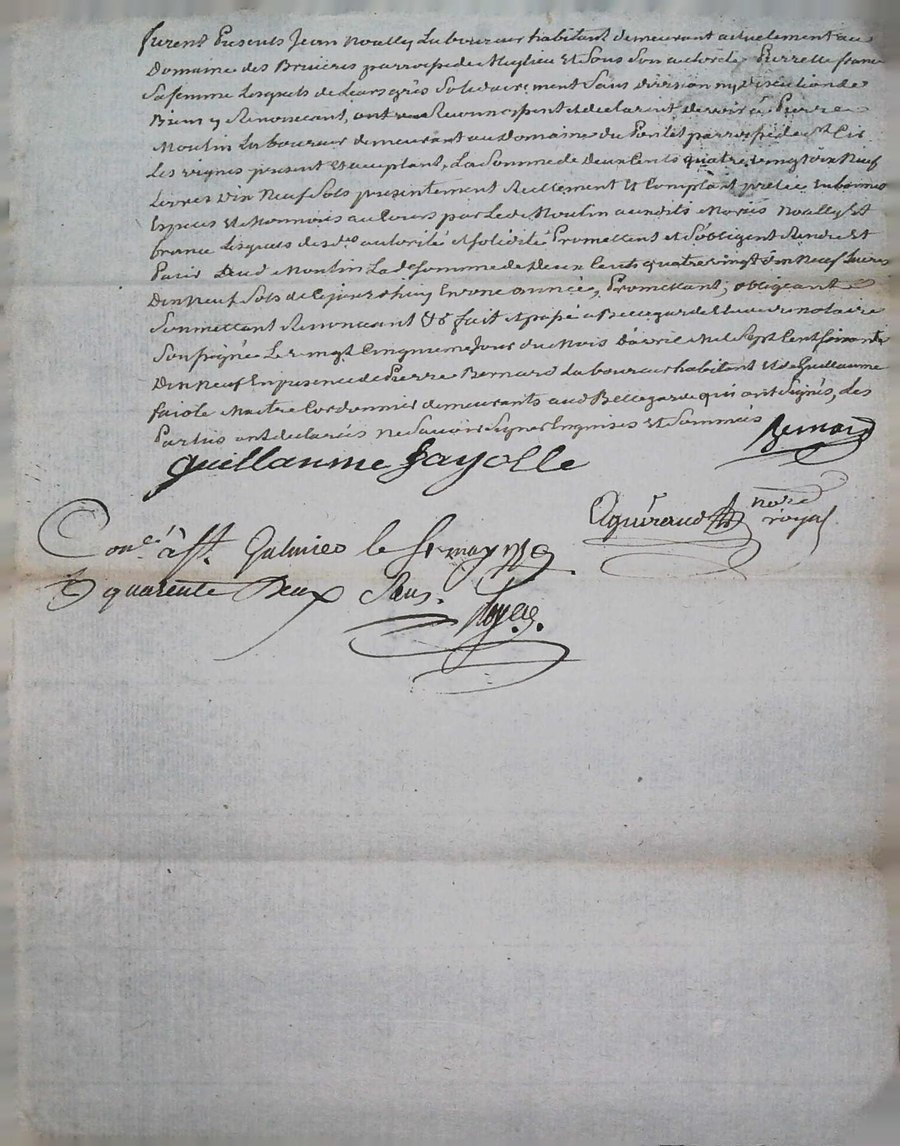 furent Presents Jean Noally Laboureur habitant demeurant actuelement au
Domaine des Bruieres parroisse de Meylieu Et Sous Son autorité Pierrette france
Sa femme Lesquels de Leurs grés Solidairement Sans Division ny Discution de
Biens y Renoncant, ont Reconnus et declarent devoir à Pierre
Moulin Laboureur demeurant au Domaine du parroisse de St Cir
Les vignes present Et aceptant, La Somme de Deux Cents quatre vingt dix Neuf
Livres Dix Neuf Sols presentement Reellement Et Comptant pretée En bonnes
Espèces Et Monnoies au Cours par Led Moulin auxdits Mariés Noally Et
france Lesquels de de autorité et solidité Promettent et S'obligent Rendre Et
Paier aud Moulin Lade Somme de Deux Cents quatre vingt dix Neuf Livres
Dix Neuf Sols de Cejourdhuy En une année, Promettant, obligeant
Soumettant Renoncant &c fait et passé a Bellegarde notaire
Soussigné Le vingt Cinquieme Jour du Mois D'avril Mil Sept Cent Soixante
Dix Neuf En presence de Pierre Bernard Laboureur habitant Et de Guillaume
faiole Maitre Cordonnier demeurants aud Bellegarde qui ont Signés, des
Parties ont declarés ne Savoir Signer Enquises Et Sommées
Bernard
guillaume fayolle
Aguiraud nore royal
Conlé à St. Galmier le may 1779
quarente Deux Sous.